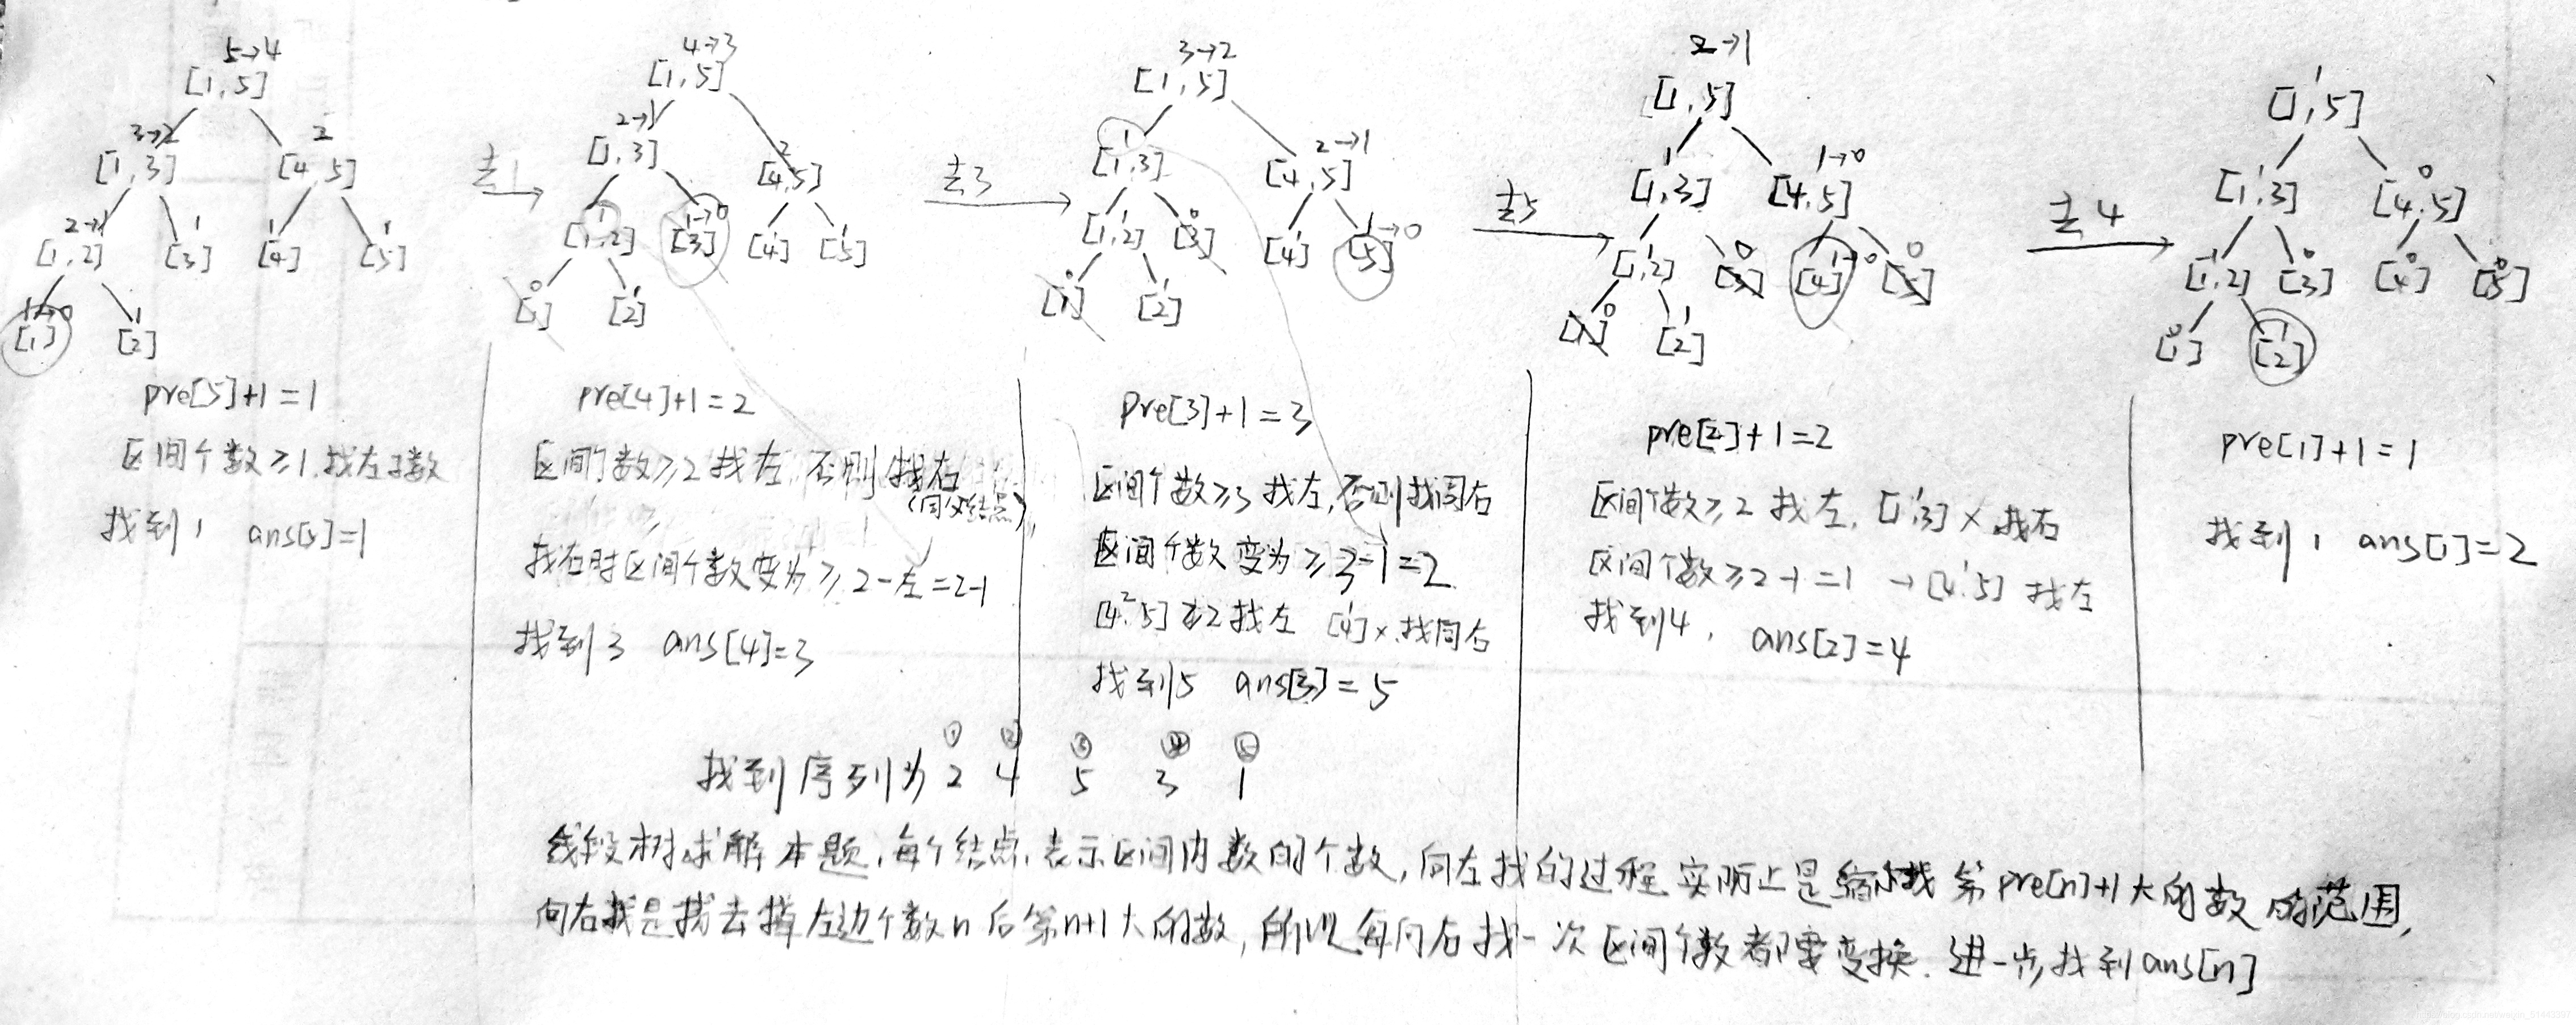 5→4
[1,5]
3→2
2
[1,3]
[4,5]
2→1
1
1
1
[1,2]
[3]
[4]
[5]
1→0
1
[1]
[2]
pre[5]+1=1
区间个数≥1,找左子数
找到1 ans[5]=1
去1
4→3
[1,5]
2→1
2
[1,3]
[4,5]
1
1→0
1
1
[1,2]
[3]
[4]
[5]
0
1
[1]
[2]
pre[4]+1=2
区间个数≥2找左,否则找右
(同父结点),
找右时区间个数变为≥2-左=2-1
找到3 ans[4]=3
去3
3→2
[1,5]
1
2→1
[1,3]
[4,5]
1
0
1
1→0
[1,2]
[3]
[4]
[5]
0
1
[1]
[2]
pre[3]+1=3
区间个数≥3找左,否则找同右
区间个数变为≥3-1=2
2
[4,5]≥2找左 [4]×,找同右
找到5 ans[3]=5
去5
2→1
[1,5]
1
1→0
[1,3]
[4,5]
1
0
1→0
0
[1,2]
[3]
[4]
[5]
0
1
[1]
[2]
pre[2]+1=2
区间个数≥2找左,[1,3]×,找右
区间个数≥2-1=1 →[4,5]找左
找到4, ans[2]=4
去4
1
[1,5]
1
0
[1,3]
[4,5]
1
0
0
0
[1,2]
[3]
[4]
[5]
0
1
[1]
[2]
pre[1]+1=1
找到1 ans[1]=2
① ② ③ ④ ⑤
找到序列为 2 4 5 3 1
线段树求解本题,每个结点,表示区间内数的个数,向左找的过程实际上是缩小找第pre[n]+1大的数的范围,
向右找是找去掉左边个数n后第n+1大的数,所以每向右找一次区间个数都要变换.进一步,找到ans[n]